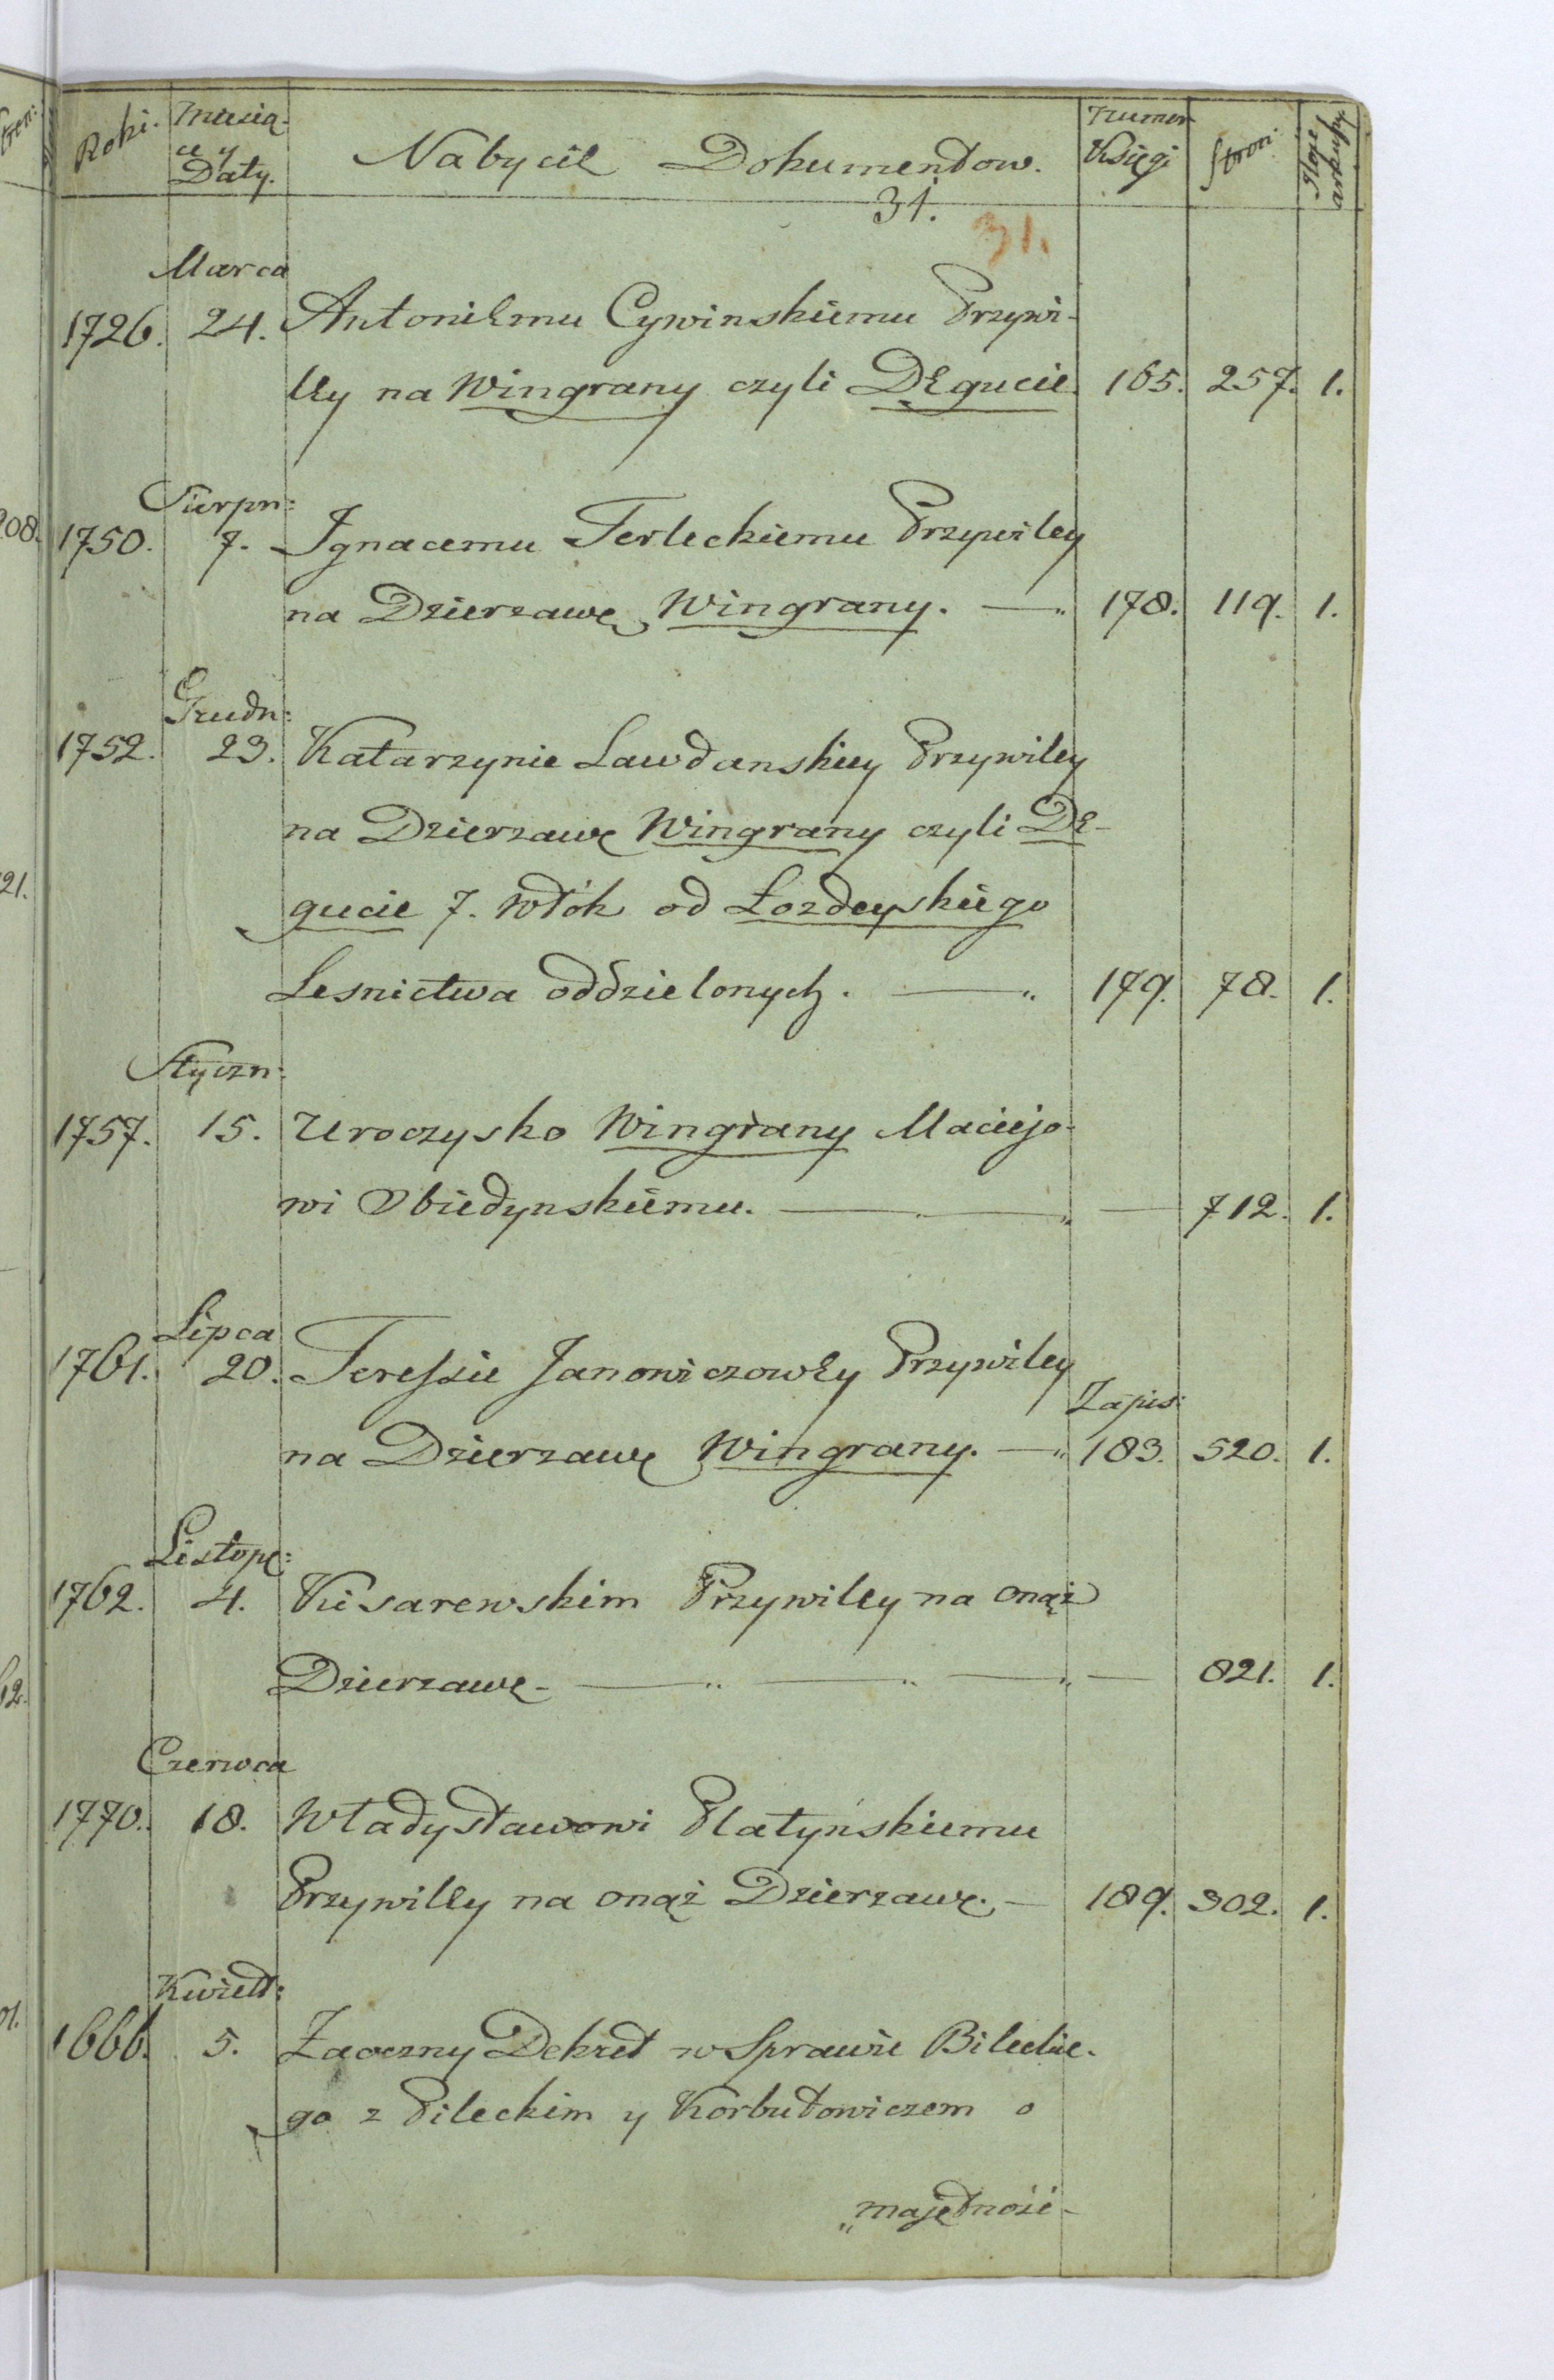 Roki. Miesią-
ce y
Daty.
Nabycie Dokumentow.
Numer
Księgi
Stron:
Iłość
arkuszy
31.
31.
Marca
1726. 24. Antoniemu Cywinskiemu Przywi-
ley na Wingrany czyli Degucie 165. 257. 1.
Sierpn:
1750. 7. Ignacemu Terleckiemu Przywiley
na Dzierzawę Wingrany. — 178. 119. 1.
Grudn:
1752. 23. Katarzynie Lawdanskiey Przywiley
na Dzierzawę Wingrany czyli De-
gucie 7. Włók od Łozdeyskiego
Lesnictwa oddzielonych. — 179. 78. 1.
Styczn:
1757. 15. Uroczysko Wingrany Maciejo-
wi Obiedynskiemu. — — — 712. 1.
Lipca
1761. 20. Teressie Janowiczowey Przywiley
Zapis:
na Dzierzawę Wingrany. — 183. 520. 1.
Listop:
1762. 4. Kisarewskim Przywiley na onąż
Dzierzawę — — — — 821. 1.
Czerwca
1770. 18. Władysławowi Platynskiemu
Przywiley na onąż Dzierzawę. — 189. 302. 1.
Kwiet:
1666. 5. Zaoczny Dekret w Sprawie Bileckie-
go z Pileckim y Korbutowiczem o
„majętność-
208.
121.